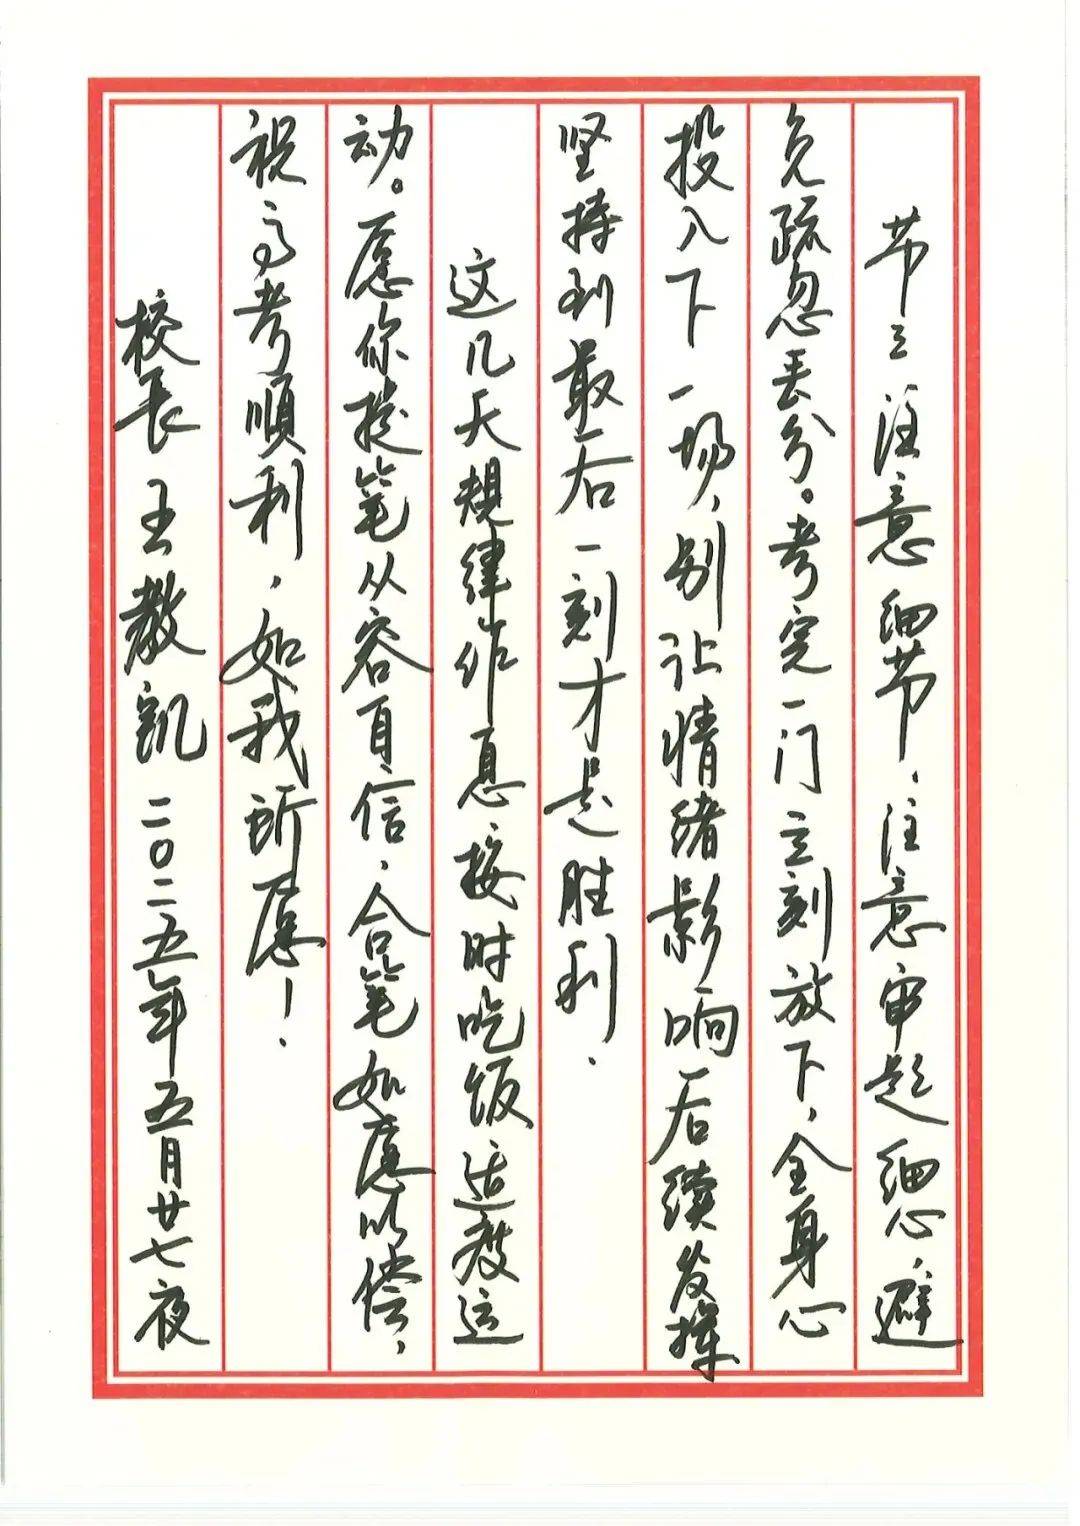 第三注意细节，注意审题细心，避
免疏忽丢分。考完一门立刻放下，全身心
投入下一场，别让情绪影响后续发挥
坚持到最后一刻才是胜利.
这几天规律作息按时吃饭适度运
动。愿你提笔从容自信，合笔如愿以偿，
祝高考顺利，如我所愿！
校长 王教凯 二〇二五年五月廿七夜